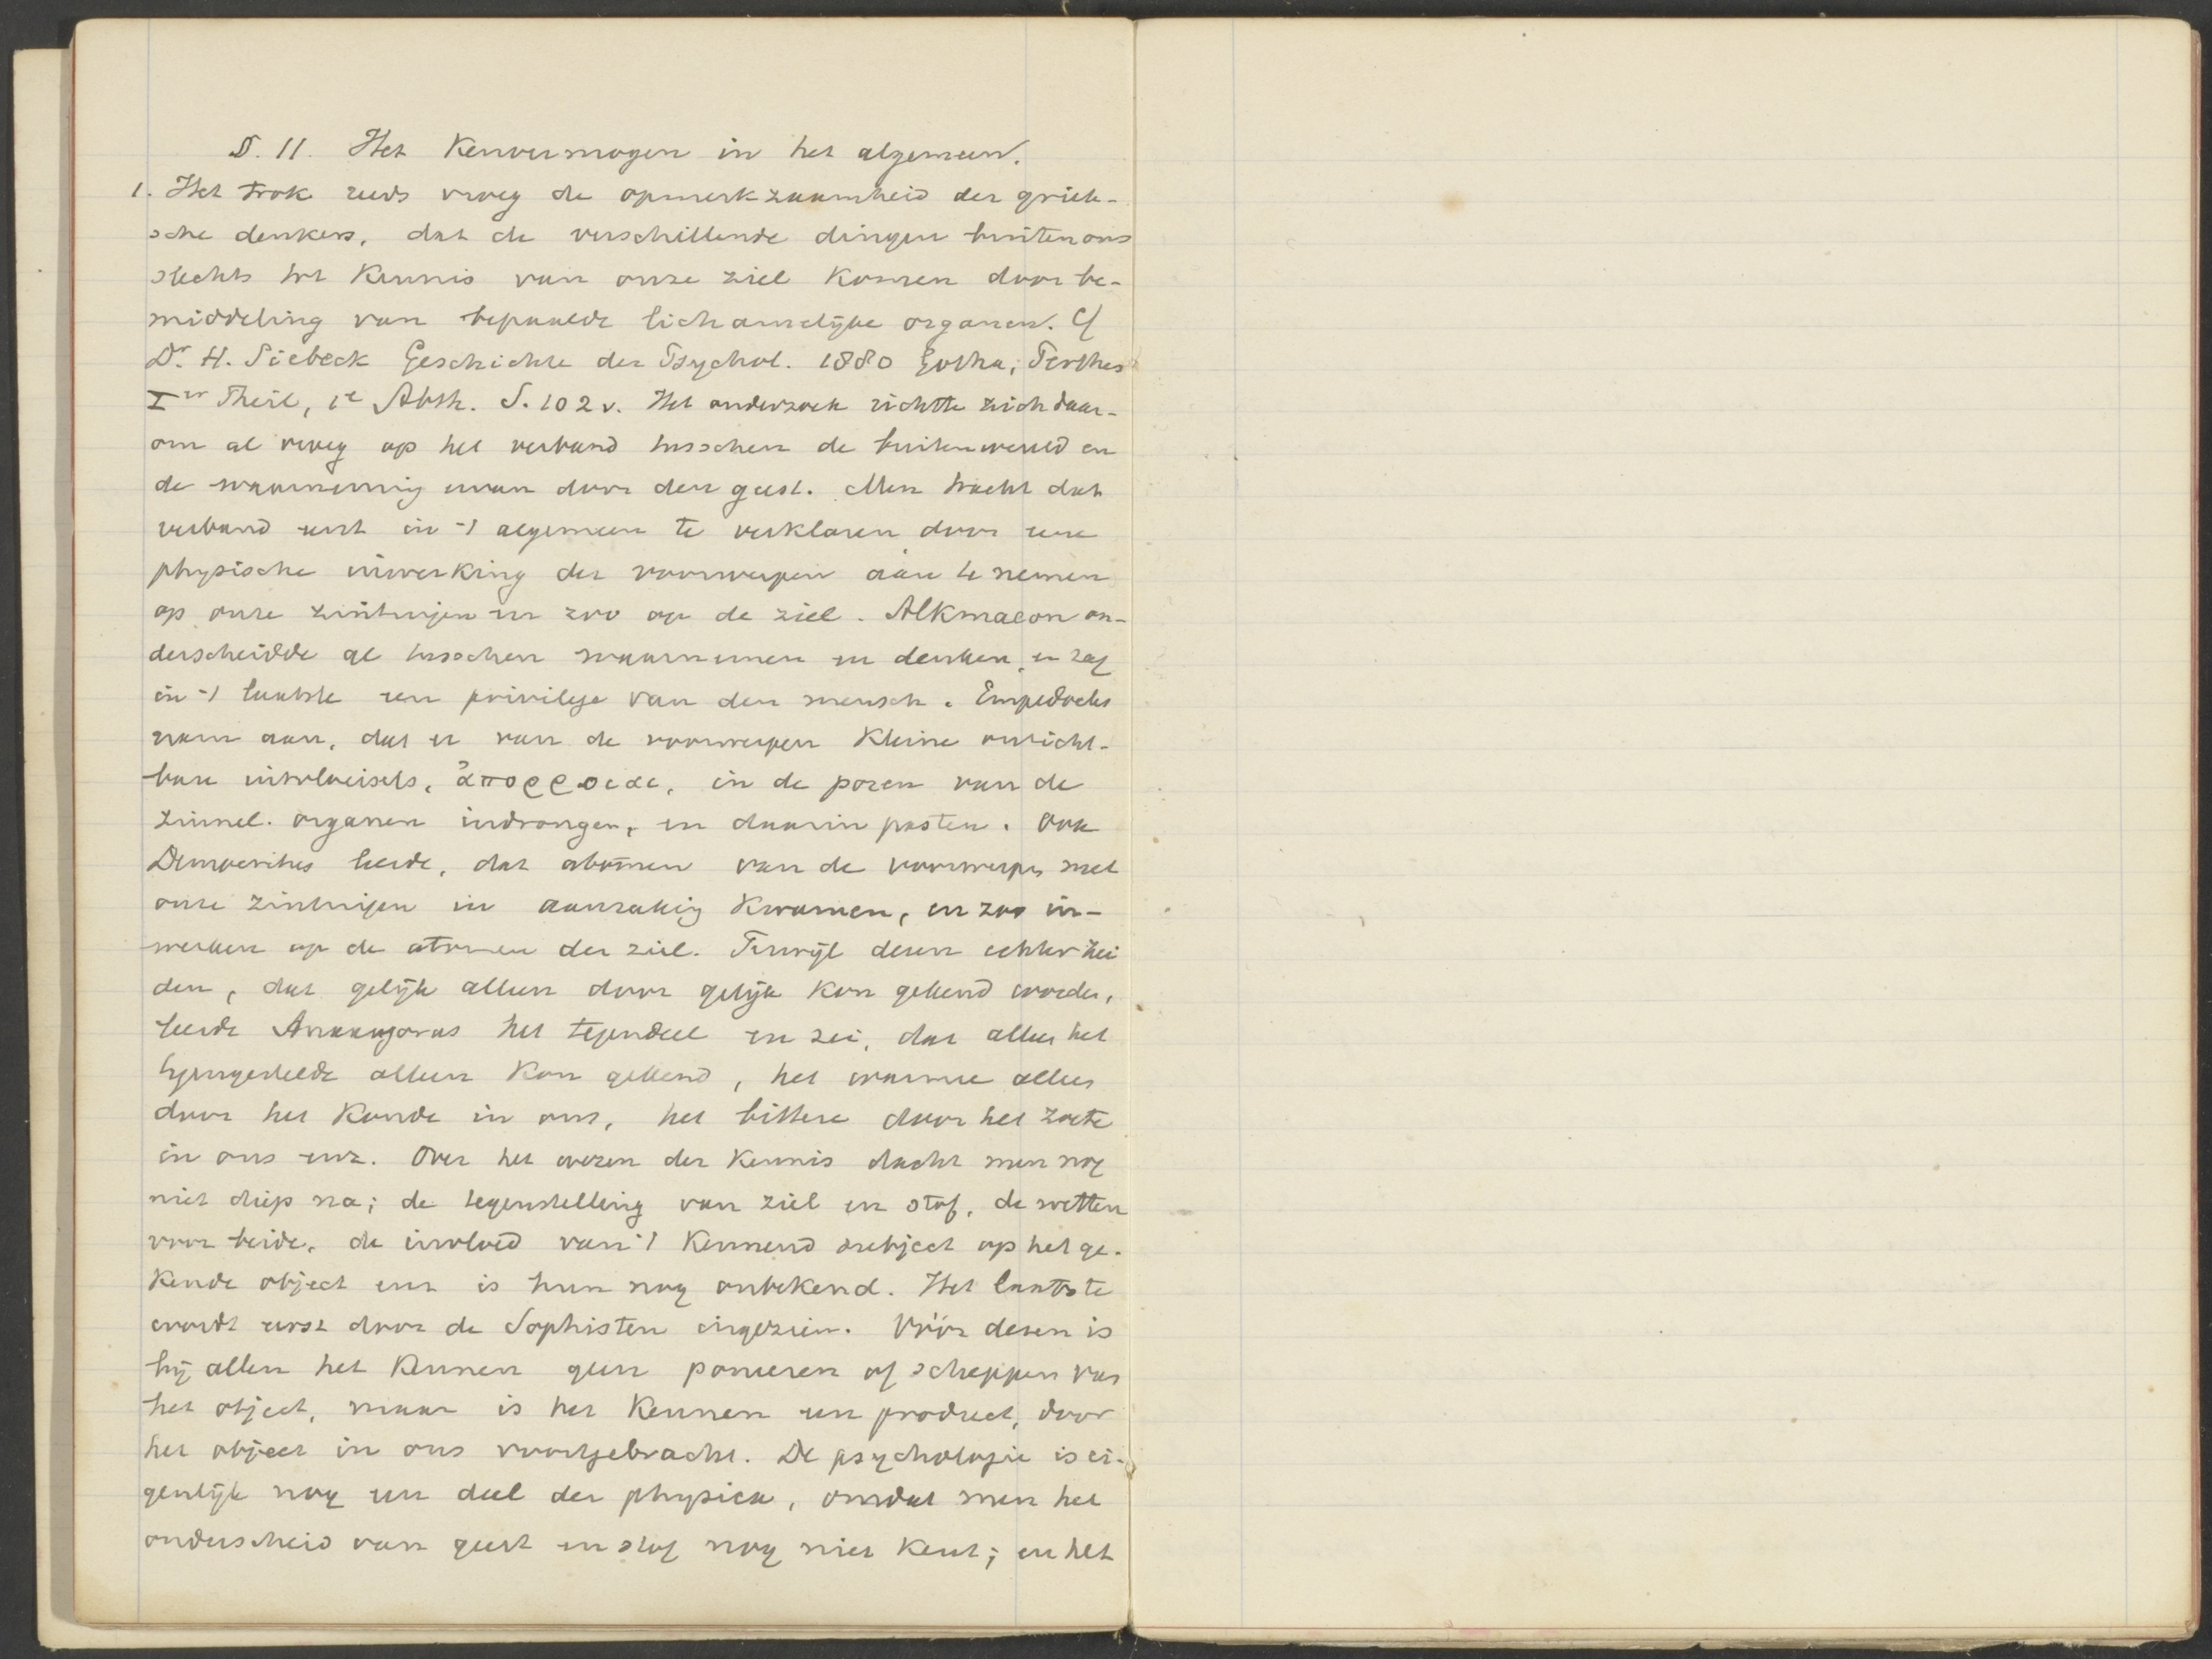 §. 11. Het Kenvermogen in het algemeen.
1. Het trok reeds vroeg de opmerkzaamheid der griek-
sche denkers, dat de verschillende dingen buiten ons
slechts tot Kennis van onze ziel Komen door be-
middeling van bepaalde lichamelijke organen. Cf
Dr. H. Siebeck Geschichte der Psychol. 1880 Gotha, Perthes
Ier Theil, 1e Abth. S. 102 v. Het onderzoek richtte zich daar-
om al vroeg op het verband tusschen de buitenwereld en
de waarneming ervan door den geest. Men tracht dat
verband eerst in 't algemeen te verklaren door eene
physische inwerking der voorwerpen aan te nemen
op onze zintuigen en zoo op de ziel. Alkmaeon on-
derscheidde al tusschen waarnemen en denken, en zag
in 't laatste een privilege van den mensch. Empedocles
nam aan, dat er van de voorwerpen Kleine onzicht-
bare uitvloeisels, ἀπορροιαι, in de poren van de
zinnel. organen indrongen, en daarin pasten. Ook
Democritus leerde, dat atomen van de voorwerpen met
onze zintuigen in aanraking Kwamen, en zoo in-
werken op de atomen der ziel. Terwijl dezen echter zei
den, dat gelijk alleen door gelijk Kon gekend worden,
leerde Anaxagoras het tegendeel en zei, dat alleen het
tegengestelde alleen Kon gekend, het warme alleen
door het Koude in ons, het bittere door het zoete
in ons enz. Over het wezen der Kennis dacht men nog
niet diep na; de tegenstelling van ziel en stof, de wetten
voor beide, de invloed van 't Kennend subject op het ge-
Kende object enz is hun nog onbekend. Het laatste
wordt eerst door de Sophisten ingezien. Vóór dezen is
bij allen het Kennen geen poneren of scheppen van
het object, maar is het Kennen een product, door
het object in ons voortgebracht. De psychologie is ei-
genlijk nog een deel der physica, omdat men het
onderscheid van geest en stof nog niet Kent; en het